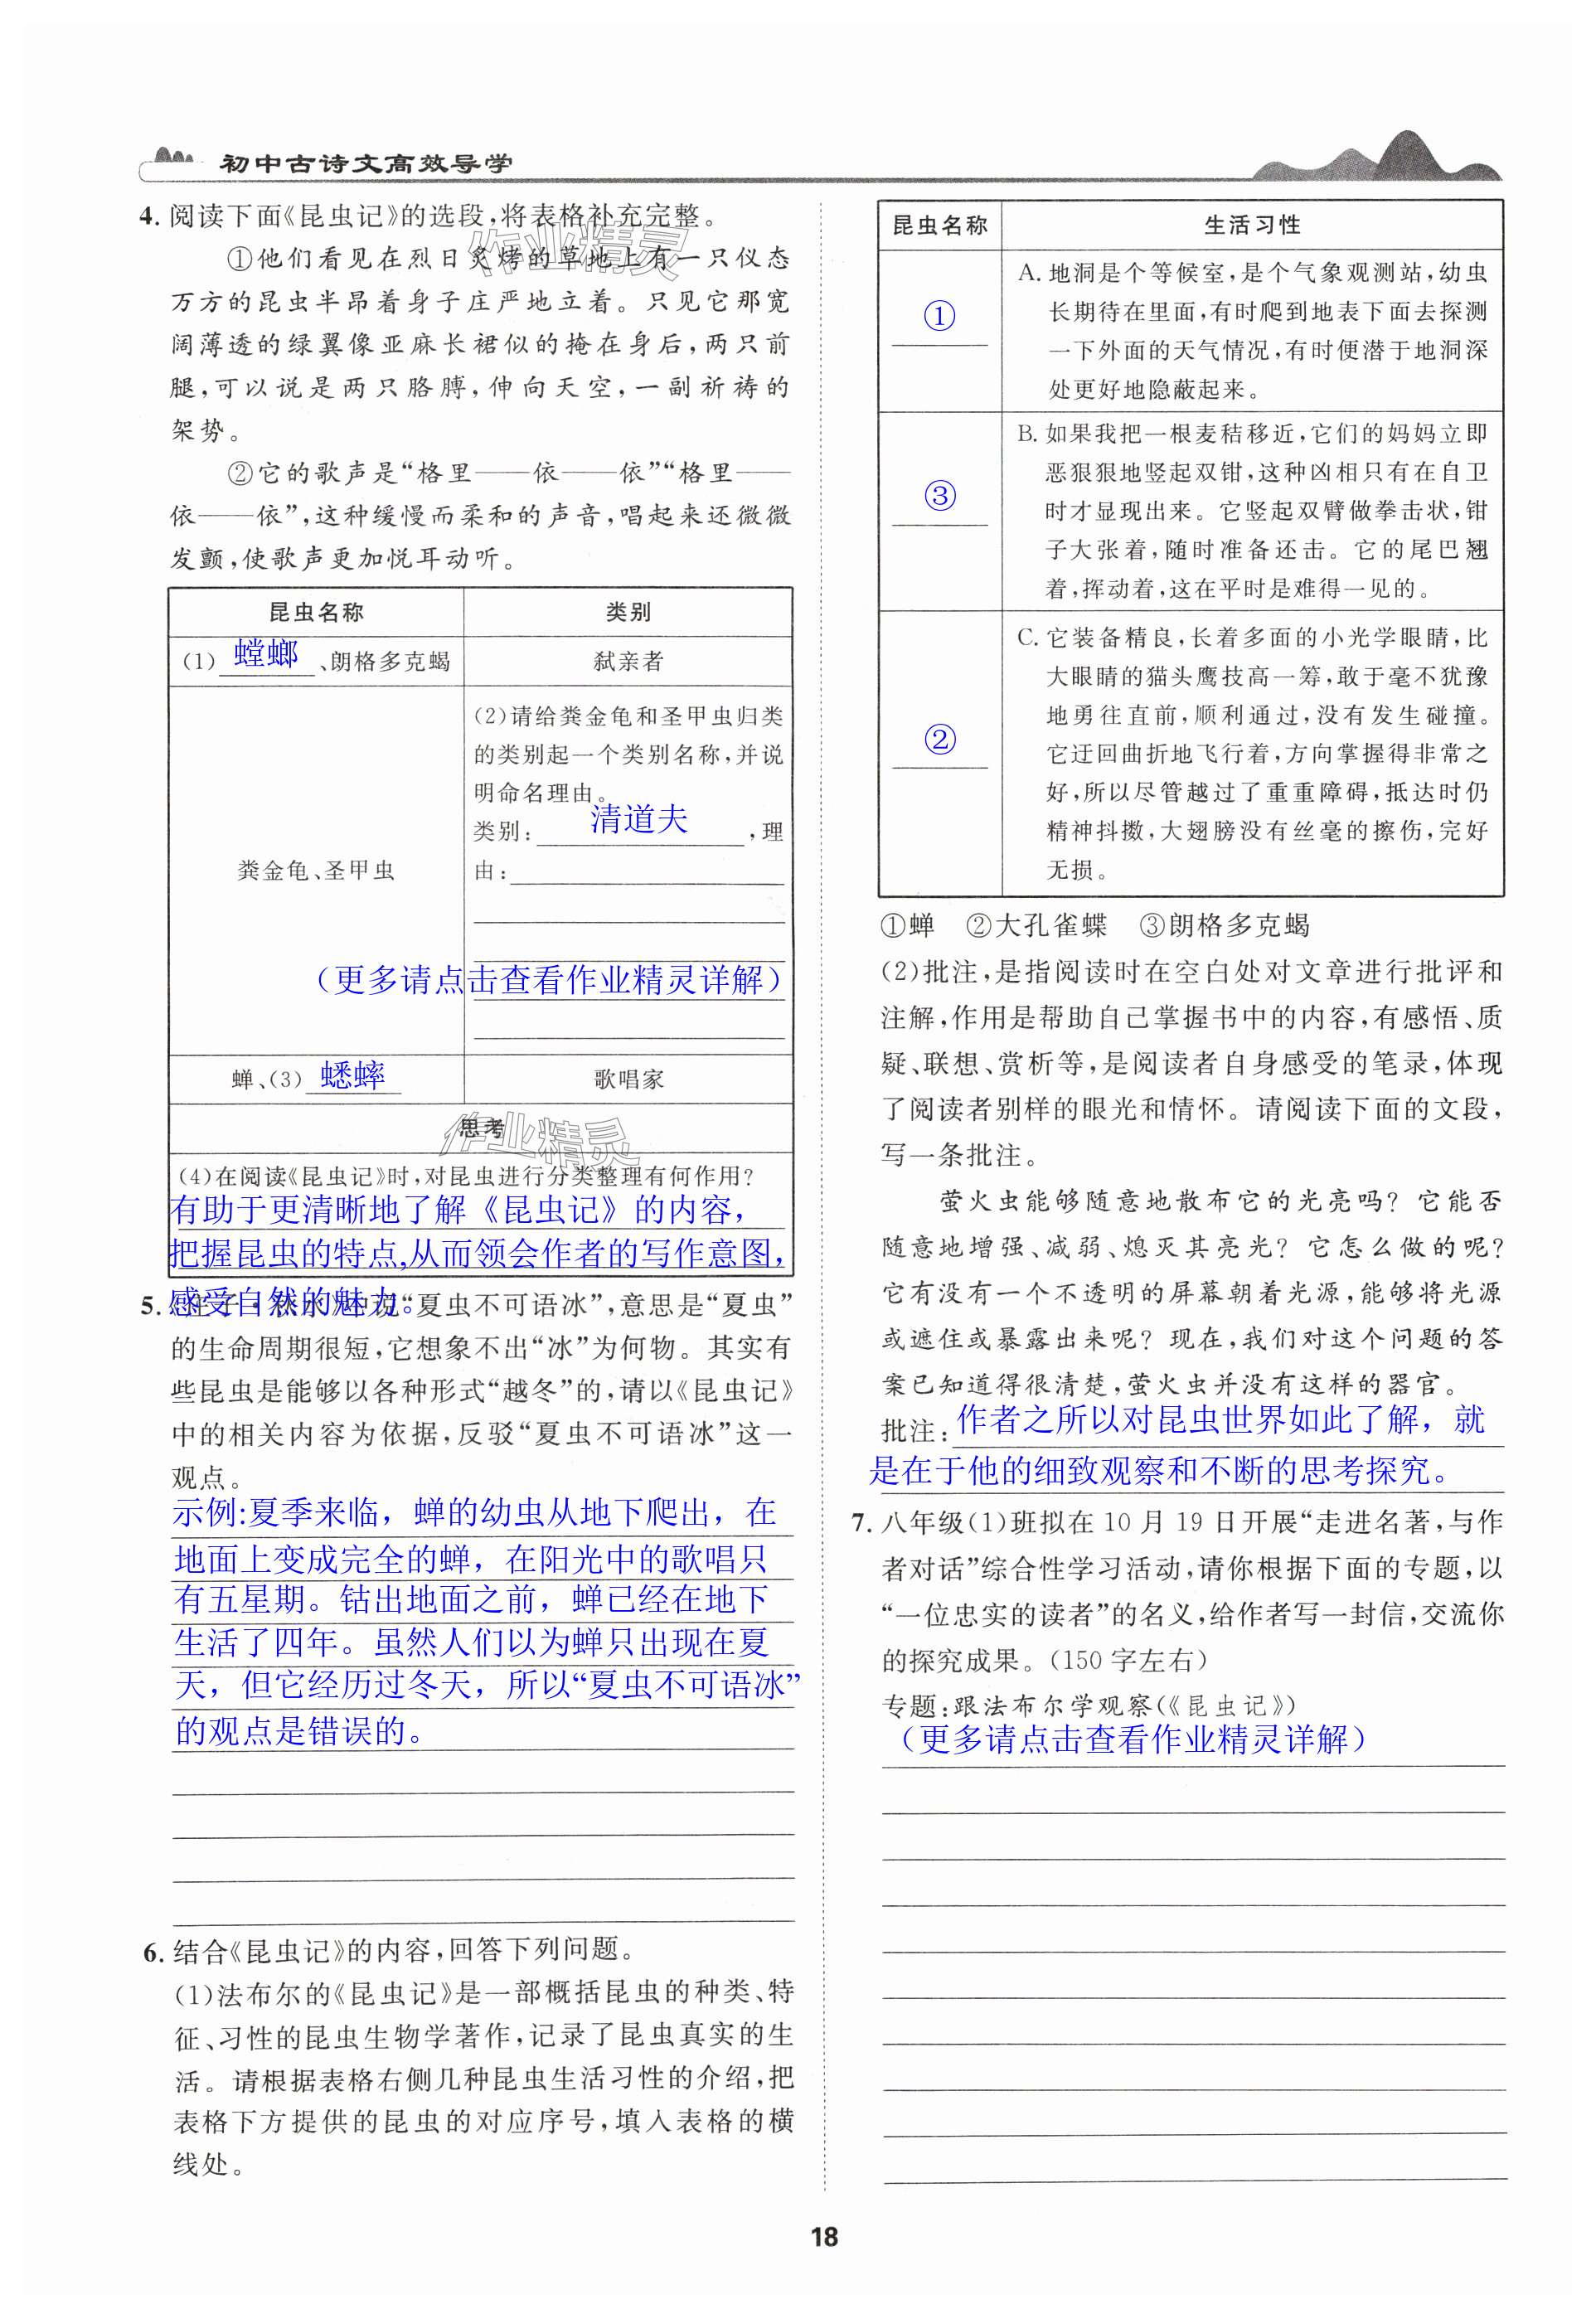 初中古诗文高效导学
4. 阅读下面《昆虫记》的选段,将表格补充完整。
①他们看见在烈日炙烤的草地上有一只仪态
万方的昆虫半昂着身子庄严地立着。只见它那宽
阔薄透的绿翼像亚麻长裙似的掩在身后,两只前
腿,可以说是两只胳膊,伸向天空,一副祈祷的
架势。
②它的歌声是“格里——依——依”“格里——
依——依”,这种缓慢而柔和的声音,唱起来还微微
发颤,使歌声更加悦耳动听。
昆虫名称 类别
(1) 螳螂 、朗格多克蝎 弑亲者
粪金龟、圣甲虫
(2)请给粪金龟和圣甲虫归类
的类别起一个类别名称,并说
明命名理由。
类别: 清道夫 ,理
由:
(更多请点击查看作业精灵详解)
蝉、(3) 蟋蟀 歌唱家
思考
(4)在阅读《昆虫记》时,对昆虫进行分类整理有何作用?
有助于更清晰地了解《昆虫记》的内容,
把握昆虫的特点,从而领会作者的写作意图,
感受自然的魅力。
5. 说“夏虫不可语冰”,意思是“夏虫”
的生命周期很短,它想象不出“冰”为何物。其实有
些昆虫是能够以各种形式“越冬”的,请以《昆虫记》
中的相关内容为依据,反驳“夏虫不可语冰”这一
观点。
示例:夏季来临，蝉的幼虫从地下爬出，在
地面上变成完全的蝉，在阳光中的歌唱只
有五星期。钻出地面之前，蝉已经在地下
生活了四年。虽然人们以为蝉只出现在夏
天，但它经历过冬天，所以“夏虫不可语冰”
的观点是错误的。
6. 结合《昆虫记》的内容,回答下列问题。
(1)法布尔的《昆虫记》是一部概括昆虫的种类、特
征、习性的昆虫生物学著作,记录了昆虫真实的生
活。请根据表格右侧几种昆虫生活习性的介绍,把
表格下方提供的昆虫的对应序号,填入表格的横
线处。
昆虫名称 生活习性
①
A. 地洞是个等候室,是个气象观测站,幼虫
长期待在里面,有时爬到地表下面去探测
一下外面的天气情况,有时便潜于地洞深
处更好地隐蔽起来。
③
B. 如果我把一根麦秸移近,它们的妈妈立即
恶狠狠地竖起双钳,这种凶相只有在自卫
时才显现出来。它竖起双臂做拳击状,钳
子大张着,随时准备还击。它的尾巴翘
着,挥动着,这在平时是难得一见的。
②
C. 它装备精良,长着多面的小光学眼睛,比
大眼睛的猫头鹰技高一筹,敢于毫不犹豫
地勇往直前,顺利通过,没有发生碰撞。
它迂回曲折地飞行着,方向掌握得非常之
好,所以尽管越过了重重障碍,抵达时仍
精神抖擞,大翅膀没有丝毫的擦伤,完好
无损。
①蝉 ②大孔雀蝶 ③朗格多克蝎
(2)批注,是指阅读时在空白处对文章进行批评和
注解,作用是帮助自己掌握书中的内容,有感悟、质
疑、联想、赏析等,是阅读者自身感受的笔录,体现
了阅读者别样的眼光和情怀。请阅读下面的文段,
写一条批注。
萤火虫能够随意地散布它的光亮吗? 它能否
随意地增强、减弱、熄灭其亮光? 它怎么做的呢?
它有没有一个不透明的屏幕朝着光源,能够将光源
或遮住或暴露出来呢? 现在,我们对这个问题的答
案已知道得很清楚,萤火虫并没有这样的器官。
批注: 作者之所以对昆虫世界如此了解，就
是在于他的细致观察和不断的思考探究。
7. 八年级(1)班拟在 10 月 19 日开展“走进名著,与作
者对话”综合性学习活动,请你根据下面的专题,以
“一位忠实的读者”的名义,给作者写一封信,交流你
的探究成果。(150 字左右)
专题:跟法布尔学观察(《昆虫记》)
(更多请点击查看作业精灵详解)
18
作业精灵
作业精灵